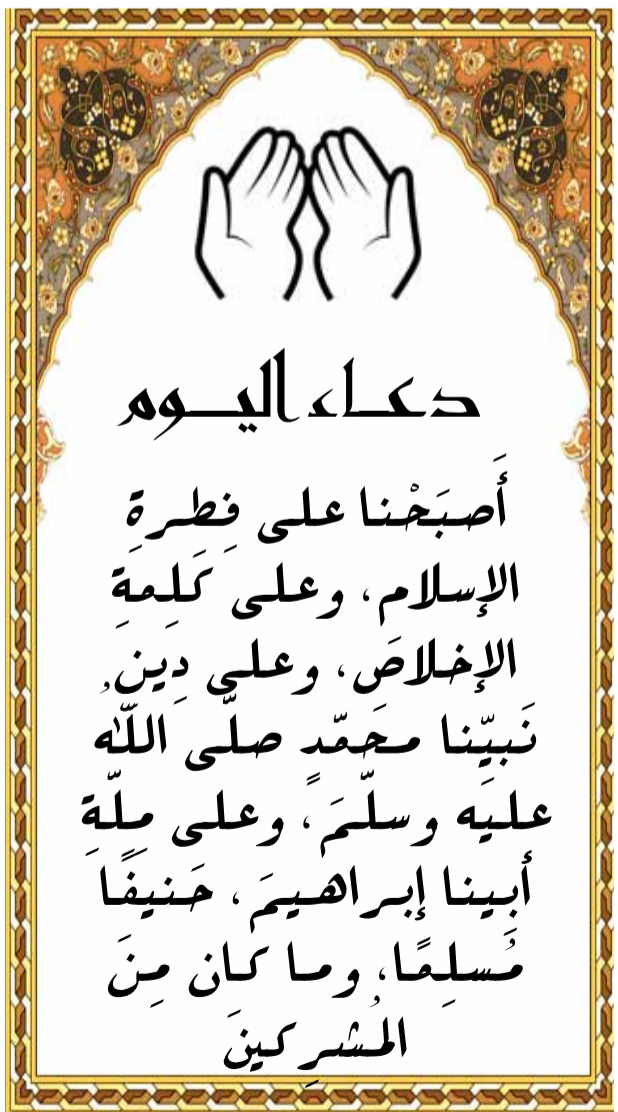 دعاء اليوم
أَصبَحْنا على فِطرةِ
الإسلام، وعلى كَلِمةِ
الإخلاصَ، وعلى دِينِ
نَبيِّنا محَمّدٍ صلّى اللَّهُ
عليَه وسلّمَ، وعلى مِلّةِ
أبينا إبراهيمَ، حَنيفًا
مُسلِمًا، وما كان مِنَ
المُشرِكينَ